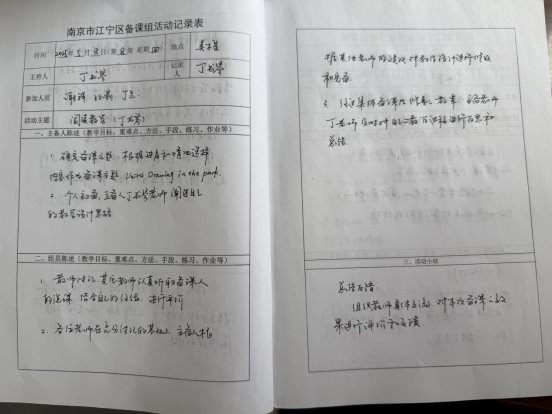 南京市江宁区备课组活动记录表
时间 2025年5月8日(第 周 星期四) 地点
主持人 丁书琴 记录人 丁书琴
参加人员 丁兰
活动主题 阅读教学(丁书琴)
一、主备人陈述(教学目标、重难点、方法、手段、练习、作业等)
确定备课主题,根据进度和情况选择
内容作为备课主题 Drawing in the park.
2. 个人初备,主备人丁书琴老师阐述自己
的教学设计思路
二、组员陈述(教学目标、重难点、方法、手段、练习、作业等)
1. 教师讨论,其它教师认真听取备课人
的说课,结合自己的经验,进行评价
2. 各位老师在充分讨论的基础上,主备人根
据其他老师的建议对教学设计进行修改
和完备.
3. 经过集体备课后,修改教案,主备老师
丁老师及时对自己教学过程进行反思和
总结.
三、活动小结
总结反馈:
组织教师集体交流,对本次备课之效
果进行评价和反馈